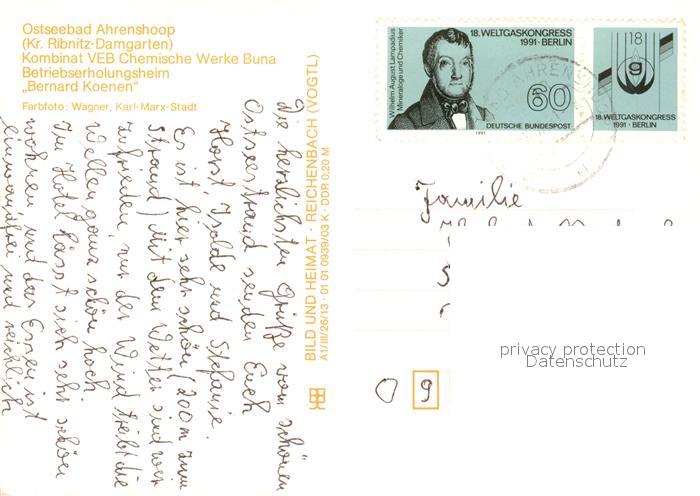 Ostseebad Ahrenshoop
(Kr. Ribnitz-Damgarten)
Kombinat VEB Chemische Werke Buna
Betriebserholungsheim
„Bernard Koenen“
Farbfoto: Wagner, Karl-Marx-Stadt
BILD UND HEIMAT · REICHENBACH (VOGTL)
A1/III/26/13 · 01 01 0939/03 K · DDR 0,20 M
Die herzlichsten Grüße vom schönen
Ostseestrand senden Euch
Horst Isolde und Stefanie.
Es ist hier sehr schön (200 m zum
Strand) mit dem Wetter sind wir
zufrieden, nur der Wind treibt die
Wellen ganz schön hoch
Im Hotel lässt sich sehr schön
wohnen und das Essen ist
einwandfrei und reichlich
Wilhelm August Lampadius
Mineraloge und Chemiker
18. WELTGASKONGRESS
1991 · BERLIN
60
DEUTSCHE BUNDESPOST
1991
18
9
18. WELTGASKONGRESS
1991 · BERLIN
AHRENS
Familie
O 9
privacy protection
Datenschutz